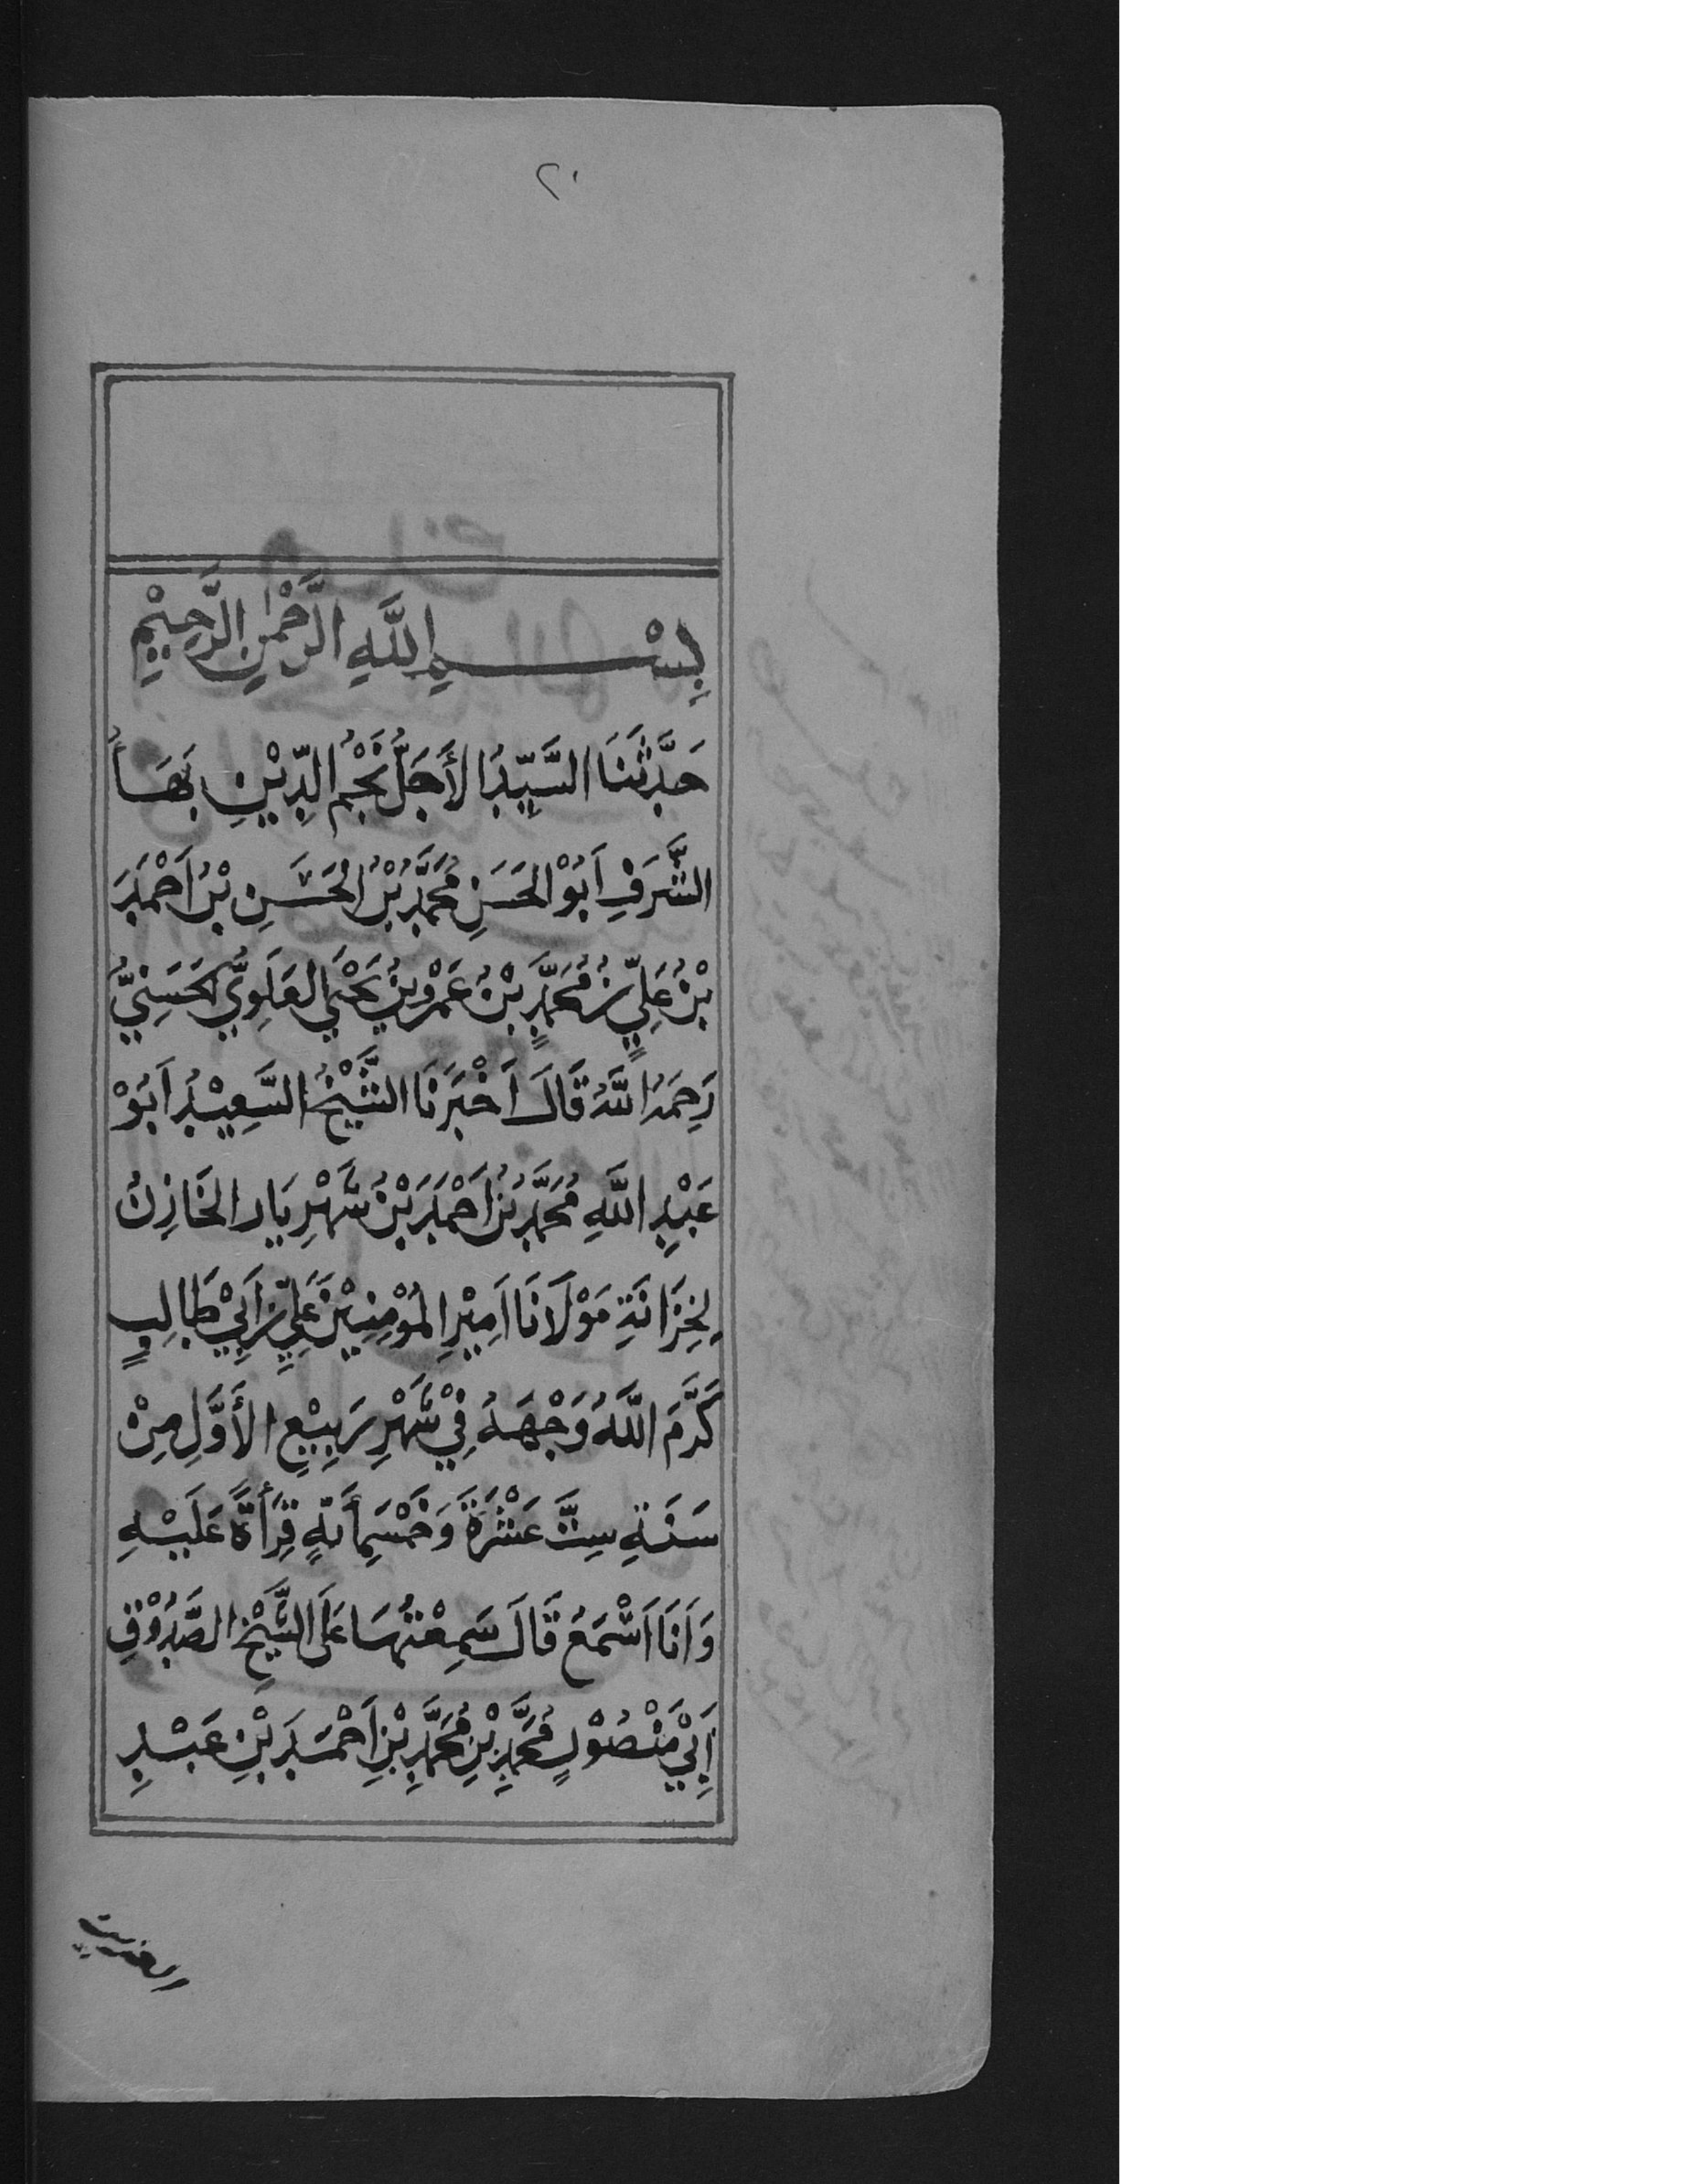 ٢٠
بِسْمِ اللَّهِ الرَّحْمٰنِ الرَّحِيْمِ
حَدَّثَنَا السَّيِّدُ الأَجَلُّ نَجْمُ الدِّيْنِ بَهَاُ
الشَّرَفِ اَبُوْ الحَسَنِ مُحَمَّدُ بْنُ الحَسَنِ بْنُ اَحْمَدَ
بْنُ عَلِيِّ بْنُ مُحَمَّدٍ بْنُ عَمْرِو بْنُ يَحْيَى العَلَوِيُّ الحَسَنِيُّ
رَحِمَهُ اللَّهُ قَالَ اَخْبَرَنَا الشَّيْخُ السَّعِيْدُ اَبُوْ
عَبْدِ اللَّهِ مُحَمَّدُ بْنُ اَحْمَدَ بْنُ شَهْرِيَار الخَازِنُ
لِخِزَانَةِ مَوْلَانَا اَمِيْرِ المُؤْمِنِيْنَ عَلِيِّ بْنِ اَبِيْ طَالِبٍ
كَرَّمَ اللَّهُ وَجْهَهُ فِيْ شَهْرِ رَبِيْعِ الأَوَّلِ مِنْ
سَنَةِ سِتَّ عَشْرَةَ وَخَمْسِمِأَئَةٍ قِرَأَةً عَلَيْهِ
وَاَنَا اَسْمَعُ قَالَ سَمِعْتُهَا عَلَى الشَّيْخِ الصَّدُوْقِ
اَبِيْ مَنْصُوْرٍ مُحَمَّدِ بْنِ مُحَمَّدِ بْنِ اَحْمَدَ بْنِ عَبْدِ